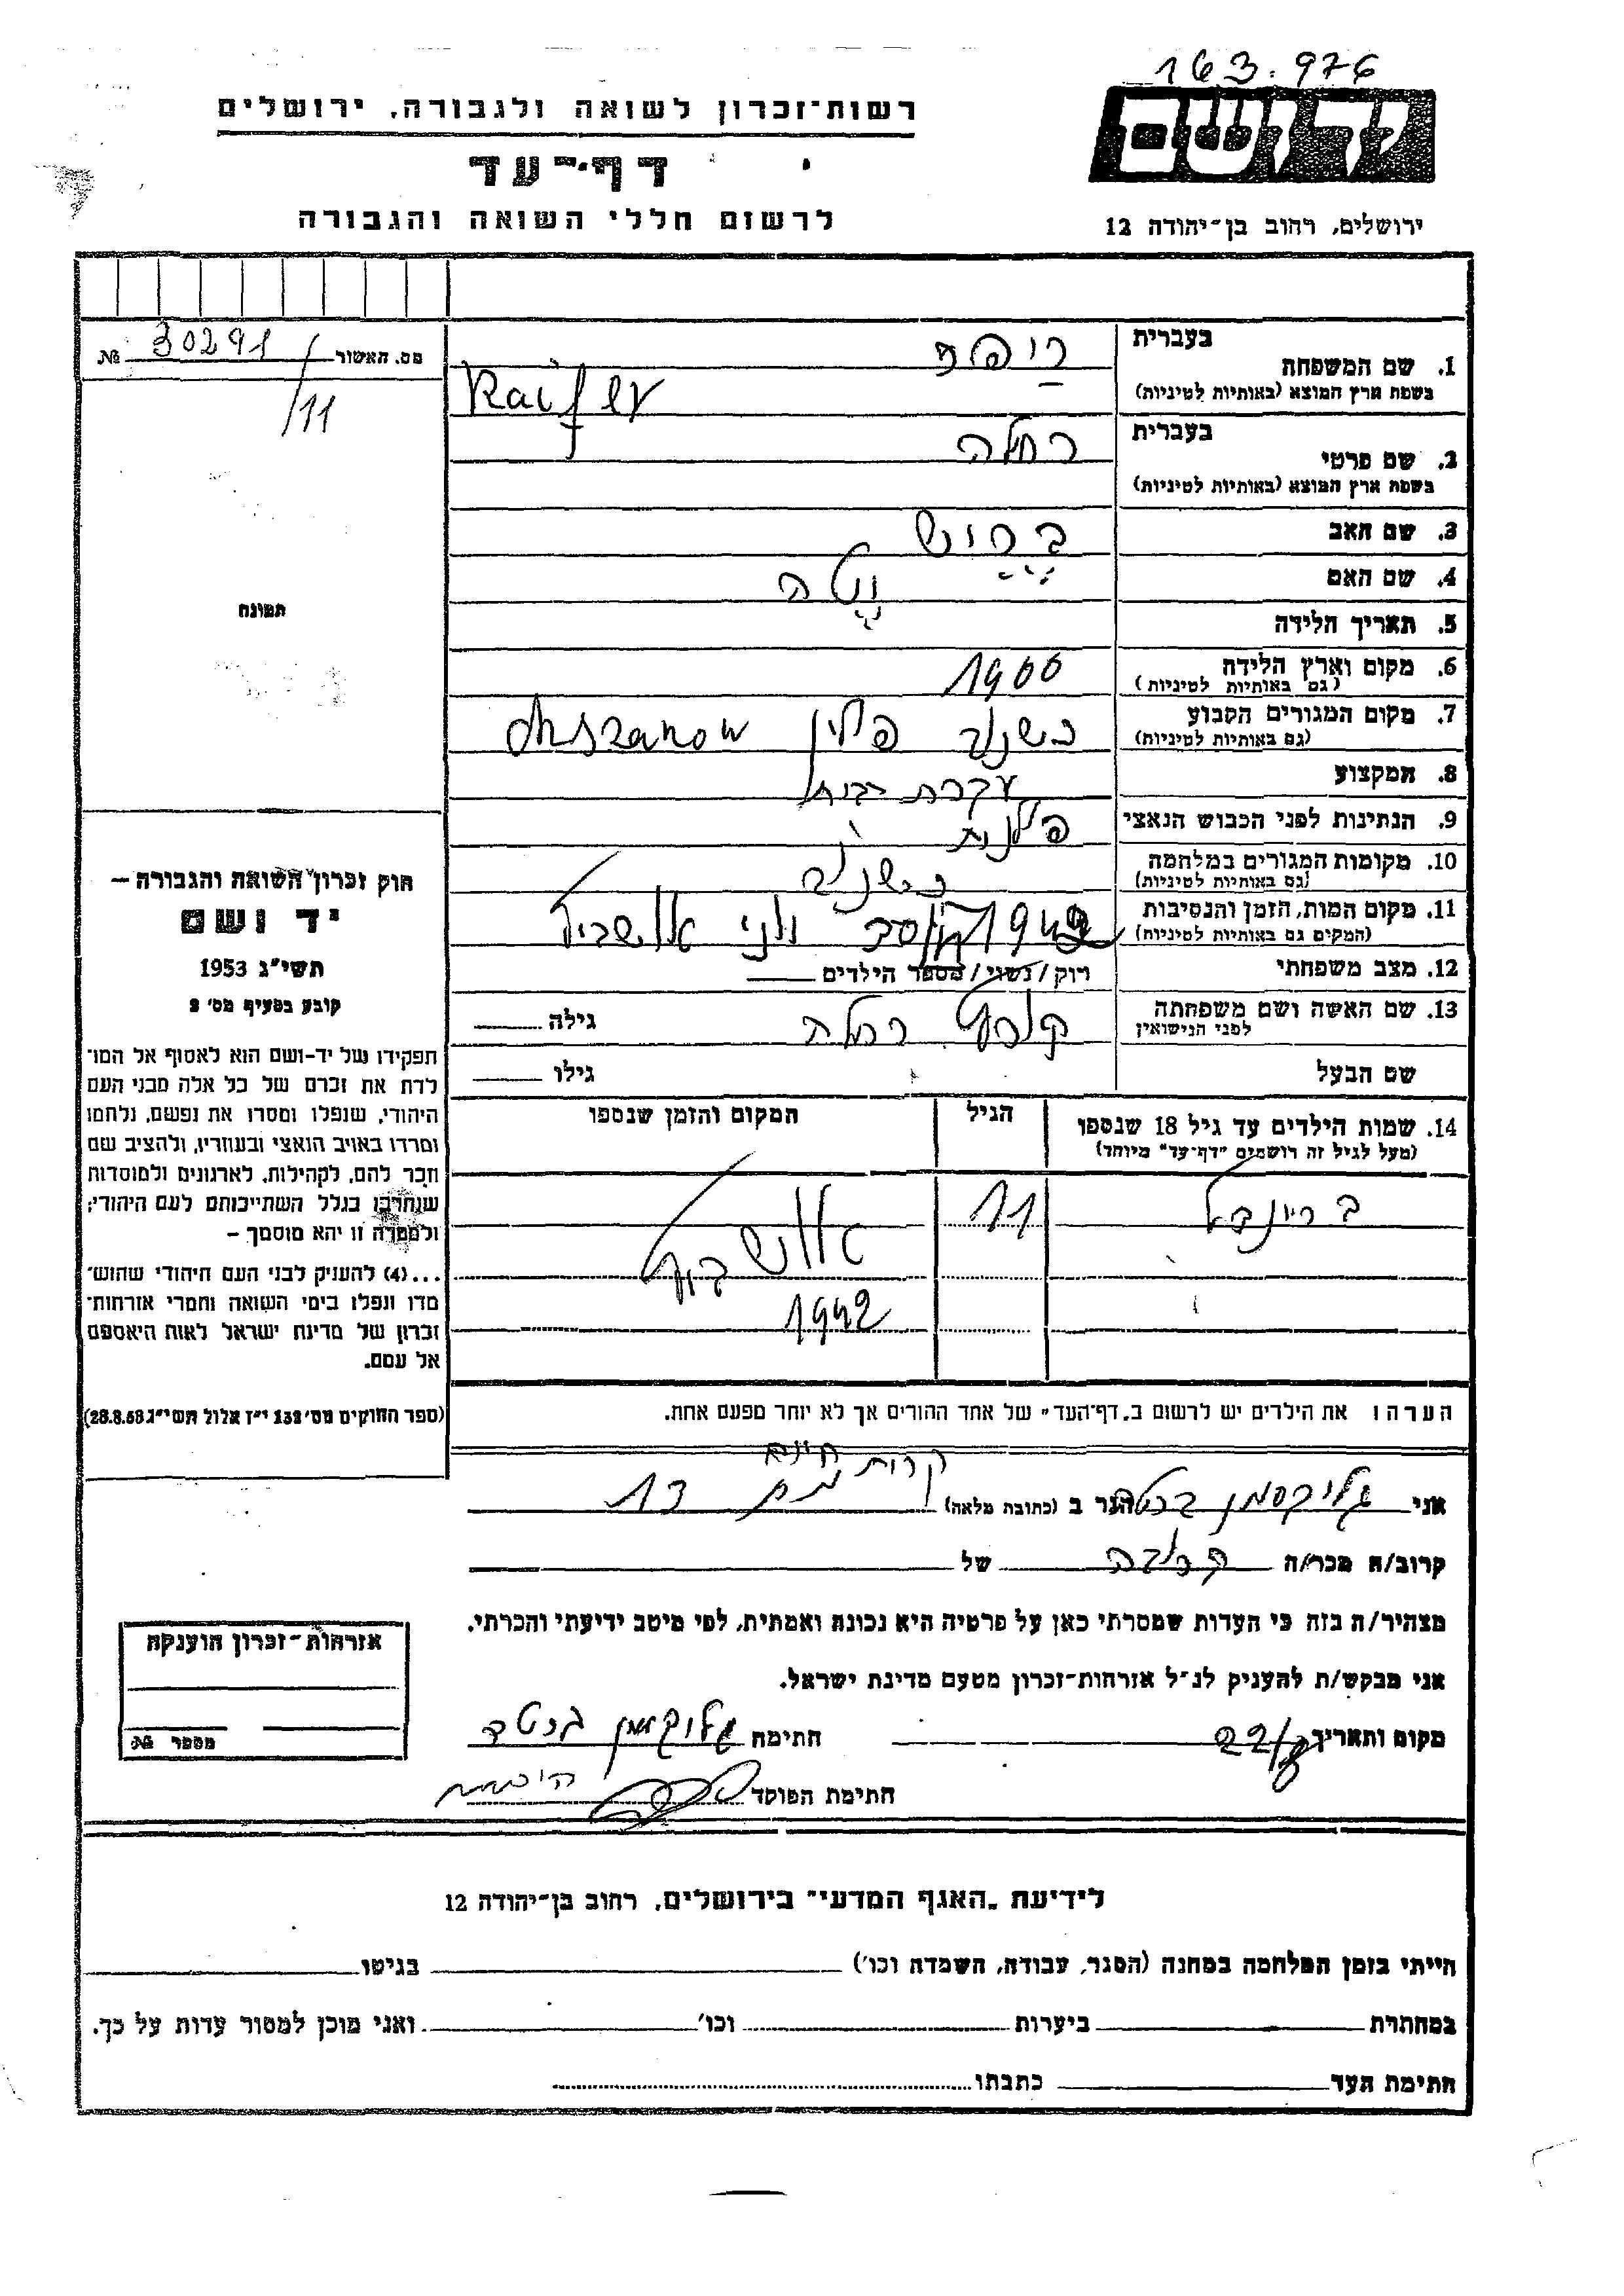 163.976
רשות־זכרון לשואה ולגבורה, ירושלים
דף־עד
לרשום חללי השואה והגבורה
ידושם
ירושלים, רחוב בן־יהודה 12
מס. האשור 30291 №
/11
תמונה
בעברית
1. שם המשפחה
בשפת ארץ המוצא (באותיות לטיניות)
בעברית
2. שם פרטי רחלה
בשפת ארץ המוצא (באותיות לטיניות)
3. שם האב
4. שם האם
5. תאריך הלידה
6. מקום וארץ הלידה 1900
(גם באותיות לטיניות)
7. מקום המגורים הקבוע כשנוב פולין
(גם באותיות לטיניות)
8. המקצוע עקרת בית
9. הנתינות לפני הכבוש הנאצי פולנית
10. מקומות המגורים במלחמה כשנוב
(גם באותיות לטיניות)
11. מקום המות, הזמן והנסיבות 1942
(המקום גם באותיות לטיניות)
12. מצב משפחתי רוק / נשוי / מספר הילדים
13. שם האשה ושם משפחתה גילה
לפני הנישואין
שם הבעל גילו
14. שמות הילדים עד גיל 18 שנספו הגיל המקום והזמן שנספו
(מעל לגיל זה רושמים "דף־עד" מיוחד)
11
1942
הערה ו את הילדים יש לרשום ב„דף־העד" של אחד ההורים אך לא יותר מפעם אחת.
חוק זכרון השואה והגבורה –
יד ושם
תשי"ג 1953
קובע בסעיף מס' 2
תפקידו של יד-ושם הוא לאסוף אל המו־
לדת את זכרם של כל אלה מבני העם
היהודי, שנפלו ומסרו את נפשם, נלחמו
ומרדו באויב הנאצי ובעוזריו, ולהציב שם
וזכר להם, לקהילות, לארגונים ולמוסדות
שנחרבו בגלל השתייכותם לעם היהודי;
ולמטרה זו יהא מוסמך –
...(4) להעניק לבני העם היהודי שהוש־
מדו ונפלו בימי השואה והמרי אזרחות־
זכרון של מדינת ישראל לאות היאספם
אל עמם.
(ספר החוקים מס' 132 י"ז אלול תשי"ג 28.8.53)
קרית חיים
אני גליקסמן ברטה הגר ב (כתובת מלאה) 13
קרוב/ה מכר/ה קרובה של
מצהיר/ה בזה כי העדות שמסרתי כאן על פרטיה היא נכונה ואמתית, לפי מיטב ידיעתי והכרתי.
אני מבקש/ת להעניק לנ"ל אזרחות־זכרון מטעם מדינת ישראל.
מקום ותאריך 22/8 חתימה גליקסמן ברטה
חתימת הפוקד
אזרחות־זכרון הוענקה
מספר №
לידיעת „האגף המדעי" בירושלים, רחוב בן־יהודה 12
הייתי בזמן המלחמה במחנה (הסגר, עבודה, השמדה וכו') בגיטו
במחתרת ביערות וכו' ואני מוכן למסור עדות על כך.
חתימת העד כתבתו